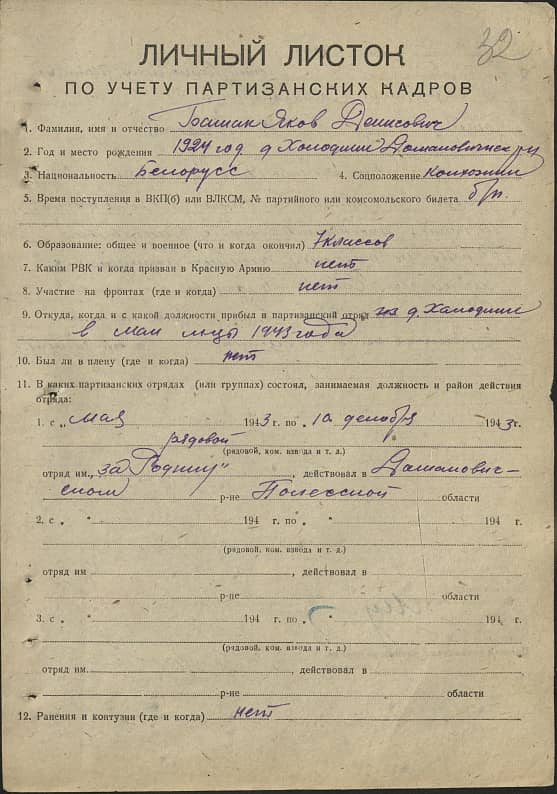 32
ЛИЧНЫЙ ЛИСТОК
ПО УЧЕТУ ПАРТИЗАНСКИХ КАДРОВ
1. Фамилия, имя и отчество Башак Яков Денисович
2. Год и место рождения 1924 год д Холодники Домановичск р-н
3. Национальность Белорусс 4. Соцположение
5. Время поступления в ВКП(б) или ВЛКСМ, № партийного или комсомольского билета б/п.
6. Образование: общее и военное (что и когда окончил) 7 классов
7. Каким РВК и когда призван в Красную Армию нет
8. Участие на фронтах (где и когда) нет
9. Откуда, когда и с какой должности прибыл в партизанский отряд из д. Холодники
в мае м-це 1943 года
10. Был ли в плену (где и когда) нет
11. В каких партизанских отрядах (или группах) состоял, занимаемая должность и район действия
отряда:
1. с „ мая 1943 г. по „ 10 декабря 1943 г.
рядовой
(рядовой, ком. взвода и т. д.)
отряд им. „за Родину" , действовал в Домановис-
ском р-не Полесской области
2. с „ " 194 г. по „ " 194 г.
(рядовой, ком. взвода и т. д.)
отряд им , действовал в
р-не области
3. с „ " 194 г. по „ " 194 г.
(рядовой, ком. взвода и т. д.)
отряд им. , действовал в
р-не области
12. Ранения и контузии (где и когда) нет